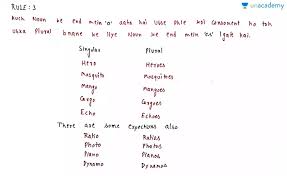 unacademy
RULE: 3
Kuch Noun ke end mein 'o' aata hai usse phle koi consonent ho toh
uska Plural bnane ke liye Noun ke end mein 'es' lgate hai.
Singular Plural
Hero Heroes
Mosquito Mosquitoes
Mango Mangoes
Cargo Cargoes
Echo Echoes
There are some expections also
Ratio Ratios
Photo Photos
Piano Pianos
Dynamo Dynamos